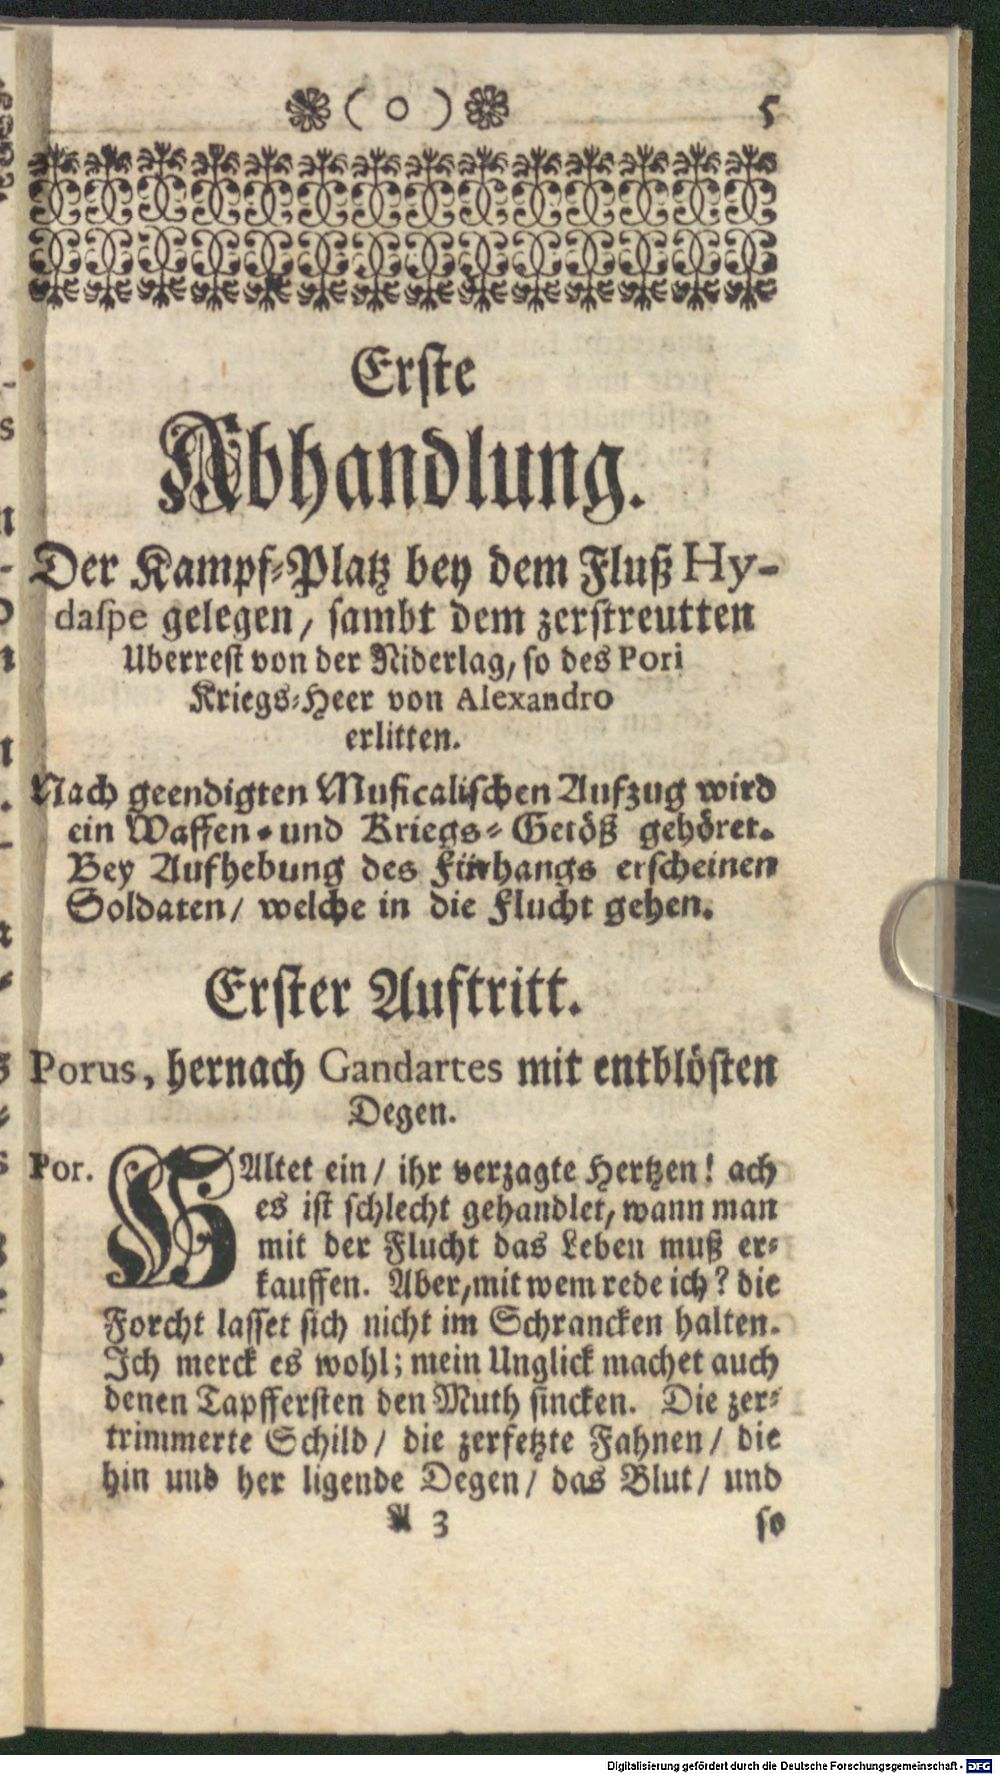 ( o ) 5
Erste
Abhandlung.
Der Kampf-Platz bey dem Fluß Hy-
daspe gelegen / sambt dem zerstreutten
Uberrest von der Niderlag, so des Pori
Kriegs-Heer von Alexandro
erlitten.
Nach geendigten Musicalischen Aufzug wird
ein Waffen- und Kriegs- Getöß gehöret.
Bey Aufhebung des Fürhangs erscheinen
Soldaten / welche in die Flucht gehen.
Erster Auftritt.
Porus, hernach Gandartes mit entblösten
Degen.
Por. HAltet ein / ihr verzagte Hertzen! ach
es ist schlecht gehandlet, wann man
mit der Flucht das Leben muß er-
kauffen. Aber, mit wem rede ich? die
Forcht lasset sich nicht im Schrancken halten.
Ich merck es wohl; mein Unglick machet auch
denen Tapffersten den Muth sincken. Die zer-
trimmerte Schild / die zerfetzte Fahnen / die
hin und her ligende Degen / das Blut / und
A 3 so
Digitalisierung gefördert durch die Deutsche Forschungsgemeinschaft - DFG